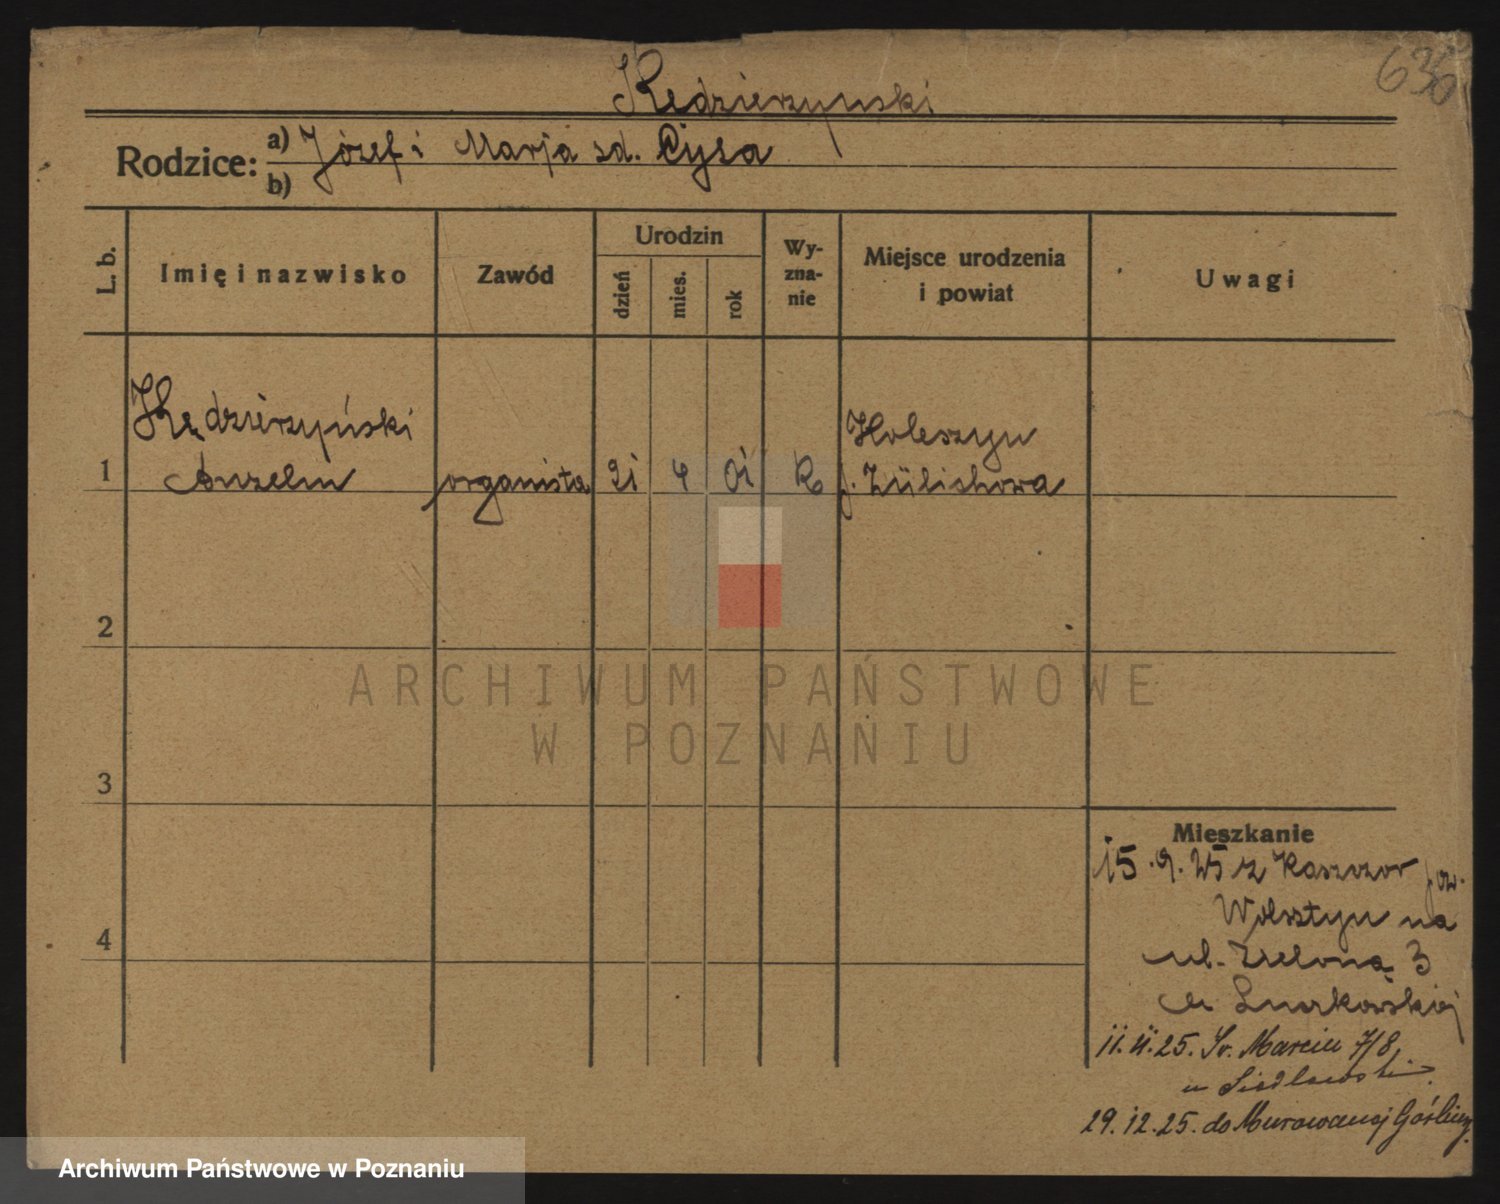 636
Kędzierzyński
Rodzice: a) Józef i Marja sd. Cysa
b)
L. b.
Imię i nazwisko
Zawód
Urodzin
dzień
mies.
rok
Wy-
zna-
nie
Miejsce urodzenia
i powiat
Uwagi
Kędzierzyński
Anzelm
1
organista
21
4
01
K
p. Züllichowa
2
3
4
Mieszkanie
15.9.25 z Kaszczor pow.
Wolsztyn na
ul. Zieloną 3
u
11.11.25. Św. Marcin 7/8
u Siedlewski
29.12.25. do Murowanej Gośliny.
ARCHIWUM PAŃSTWOWE
W POZNANIU
Archiwum Państwowe w Poznaniu